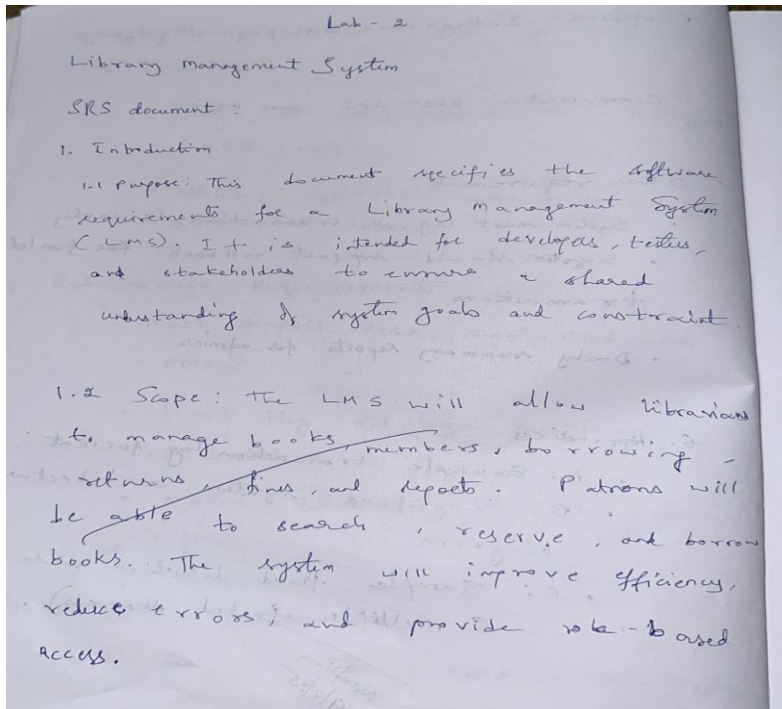 Lab - 2
Library Management System
SRS document :
1. Introduction
1.1 Purpose: This document specifies the software
requirements for a Library Management System
(LMS). It is intended for developers, testers,
and stakeholders to ensure a shared
understanding of system goals and constraint
1.2 Scope: The LMS will allow librarians
to manage books, members, borrowing -
returns, fines, and reports. Patrons will
be able to search, reserve, and borrow
books. The system will improve efficiency,
reduce errors, and provide role-based
access.